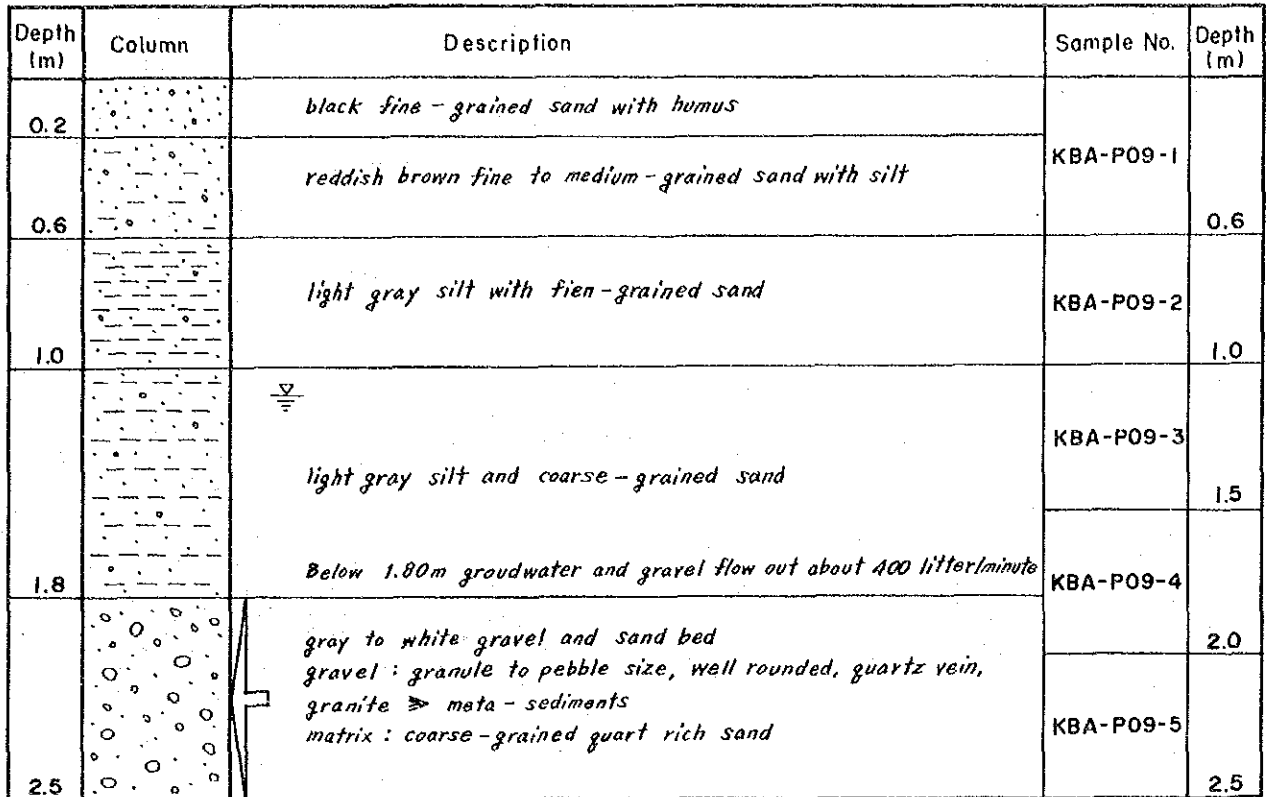 Depth (m) Column Description Sample No. Depth (m)
black fine-grained sand with humus
0.2
KBA-P09-1
reddish brown fine to medium-grained sand with silt
0.6 0.6
light gray silt with fien-grained sand KBA-P09-2
1.0 1.0
KBA-P09-3
light gray silt and coarse-grained sand
1.5
Below 1.80m groudwater and gravel flow out about 400 litter/minute KBA-P09-4
1.8
gray to white gravel and sand bed
2.0
gravel : granule to pebble size, well rounded, quartz vein,
granite ⋗ meta-sediments
matrix : coarse-grained quart rich sand KBA-P09-5
2.5 2.5